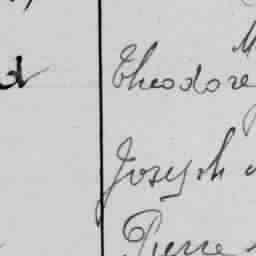 Theodore
Joseph
Pierre